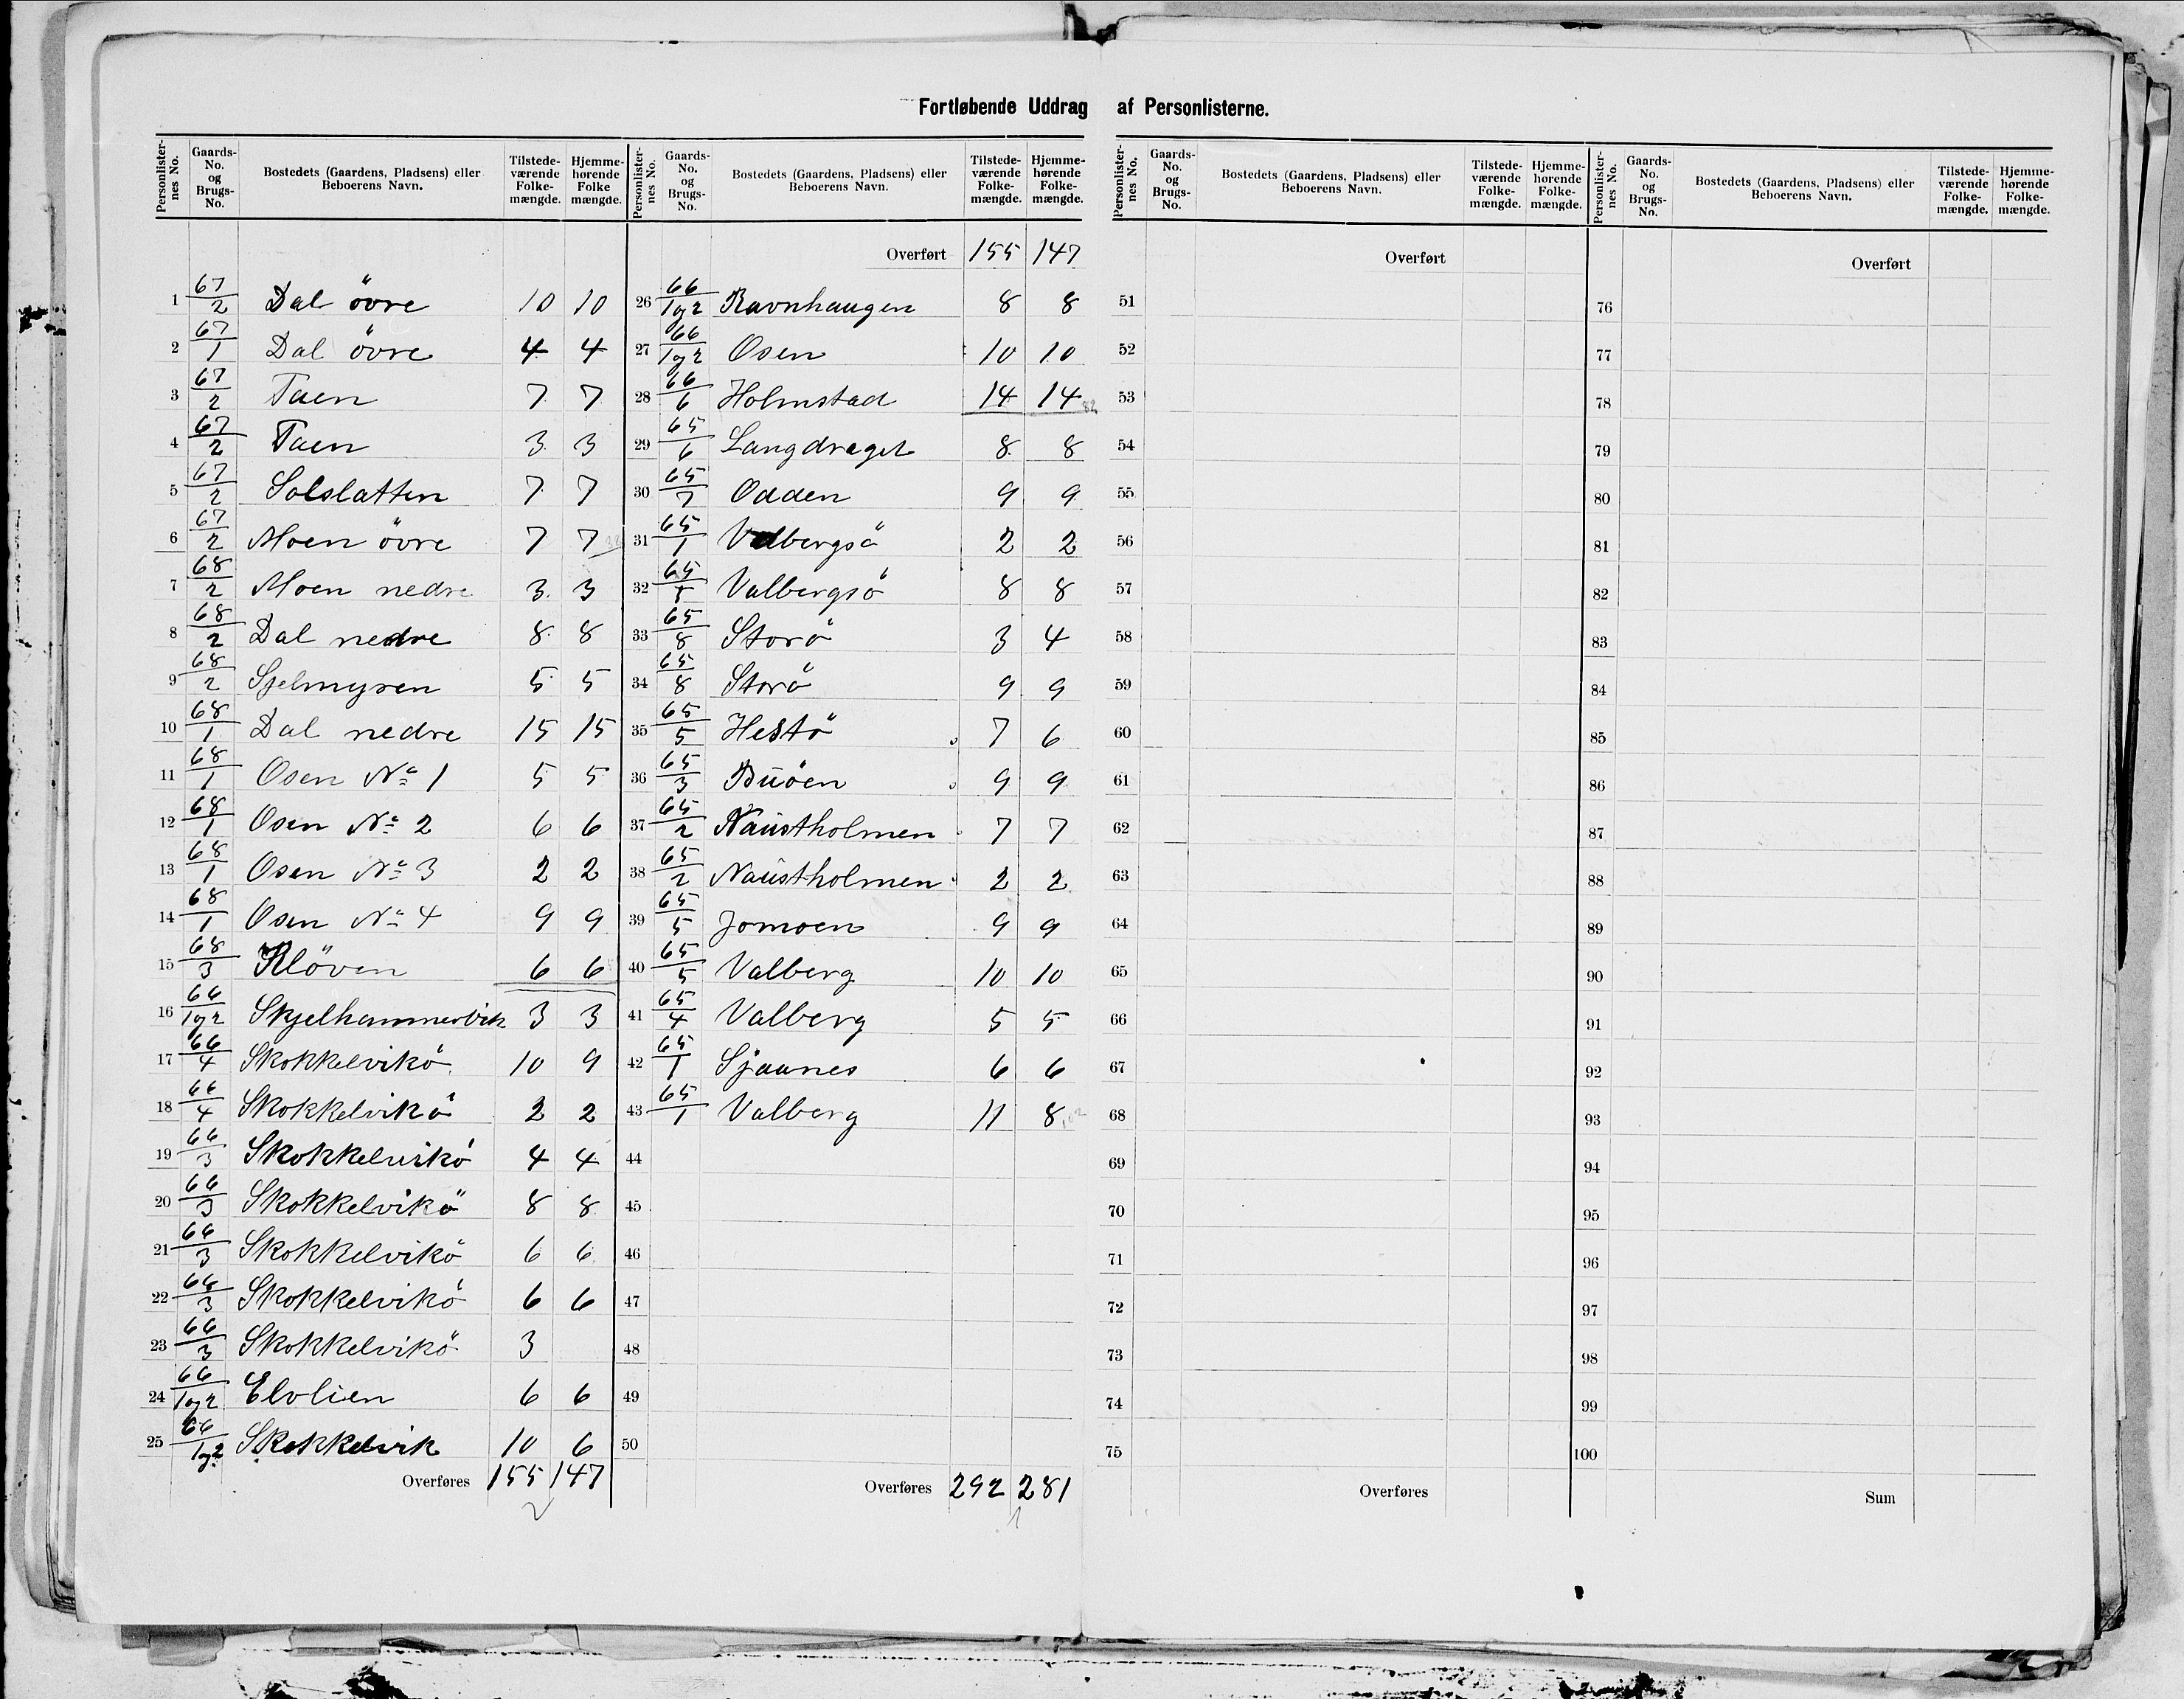 Fortløbende Uddrag af Personlisterne.
Personlister-nes No. Gaards-No. og Brugs-No. Bostedets (Gaardens, Pladsens) eller Beboerens Navn. Tilstede-værende Folke-mængde. Hjemme-hørende Folke mængde.
Personlister-nes No. Gaards-No. og Brugs-No. Bostedets (Gaardens, Pladsens) eller Beboerens Navn. Tilstede-værende Folke-mængde. Hjemme-hørende Folke-mængde.
Personlister-nes No. Gaards-No. og Brugs-No. Bostedets (Gaardens, Pladsens) eller Beboerens Navn. Tilstede-værende Folke-mængde. Hjemme-hørende Folke-mængde.
Personlister-nes No. Gaards-No. og Brugs-No. Bostedets (Gaardens, Pladsens) eller Beboerens Navn. Tilstede-værende Folke-mængde. Hjemme-hørende Folke-mængde.
1 67/2 Dal övre 10 10
2 67/1 Dal övre 4 4
3 67/2 Taen 7 7
4 67/2 Taen 3 3
5 67/2 Solslatten 7 7
6 67/2 Moen övre 7 7
7 68/2 Moen nedre 3 3
8 68/2 Dal nedre 8 8
9 68/2 Sjelmyren 5 5
10 68/1 Dal nedre 15 15
11 68/1 Osen No 1 5 5
12 68/1 Osen No 2 6 6
13 68/1 Osen No 3 2 2
14 68/1 Osen No 4 9 9
15 68/3 Klöven 6 6
16 66/1og2 Skjelhammervik 3 3
17 66/4 Skokkelvikö 10 9
18 66/4 Skokkelvikö 2 2
19 66/3 Skokkelvikö 4 4
20 66/3 Skokkelvikö 8 8
21 66/3 Skokkelvikö 6 6
22 66/3 Skokkelvikö 6 6
23 66/3 Skokkelvikö 3
24 66/1og2 Elvlien 6 6
25 66/1og2 Skokkelvik 10 6
Overføres 155 147
Overført 155 147
26 66/1og2 Ravnhaugen 8 8
27 66/1og2 Osen 10 10
28 66/6 Holmstad 14 14
29 65/6 Langdraget 8 8
30 65/7 Odden 9 9
31 65/1 Valbergsö 2 2
32 65/1 Valbergsö 8 8
33 65/8 Storö 3 4
34 65/8 Storö 9 9
35 65/5 Hestö 7 6
36 65/3 Buöen 9 9
37 65/2 Naustholmen 7 7
38 65/2 Naustholmen 2 2
39 65/5 Jomoen 9 9
40 65/5 Valberg 10 10
41 65/4 Valberg 5 5
42 65/1 Sjaanes 6 6
43 65/1 Valberg 11 8
44
45
46
47
48
49
50
Overføres 292 281
Overført
51
52
53
54
55
56
57
58
59
60
61
62
63
64
65
66
67
68
69
70
71
72
73
74
75
Overføres
Overført
76
77
78
79
80
81
82
83
84
85
86
87
88
89
90
91
92
93
94
95
96
97
98
99
100
Sum